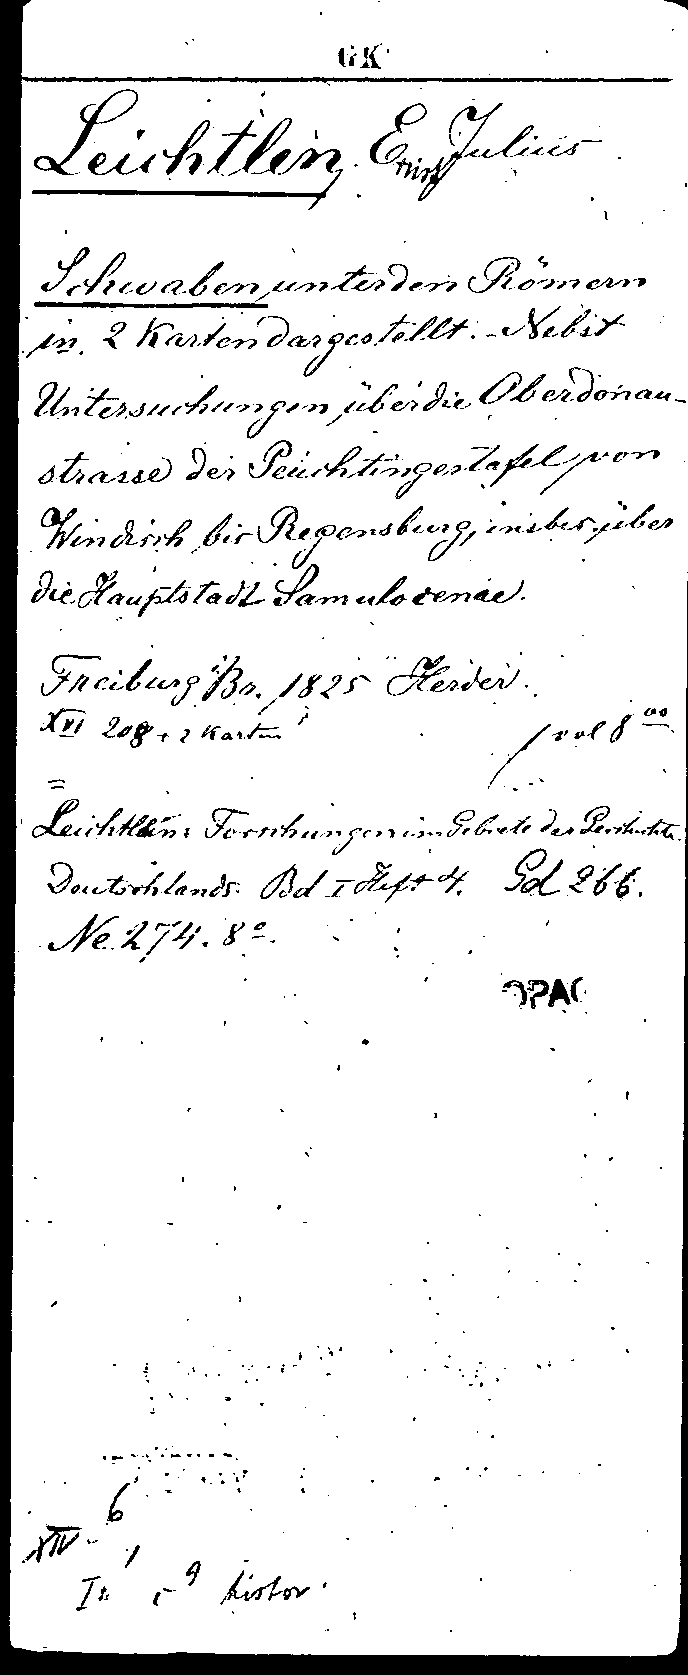 GK
Leichtlin, Ernst Julius
Schwaben unter den Römern
in 2 Karten dargestellt. - Nebst
Untersuchungen über die Oberdonau-
strasse der Peuchtingertafel von
Windisch bis Regensburg, insbes. über
die Hauptstadt Samulocenae.
Freiburg i/Br. 1825 Herder.
XVI 208 + 2 Karten
1 vol 8°°
=
Leichtlin: Forschungen im Gebiete der Geschichte
Deutschlands. Bd I Heft 4. Gd 266.
Ne 274. 8°.
OPAC
XIV - 6
histor.